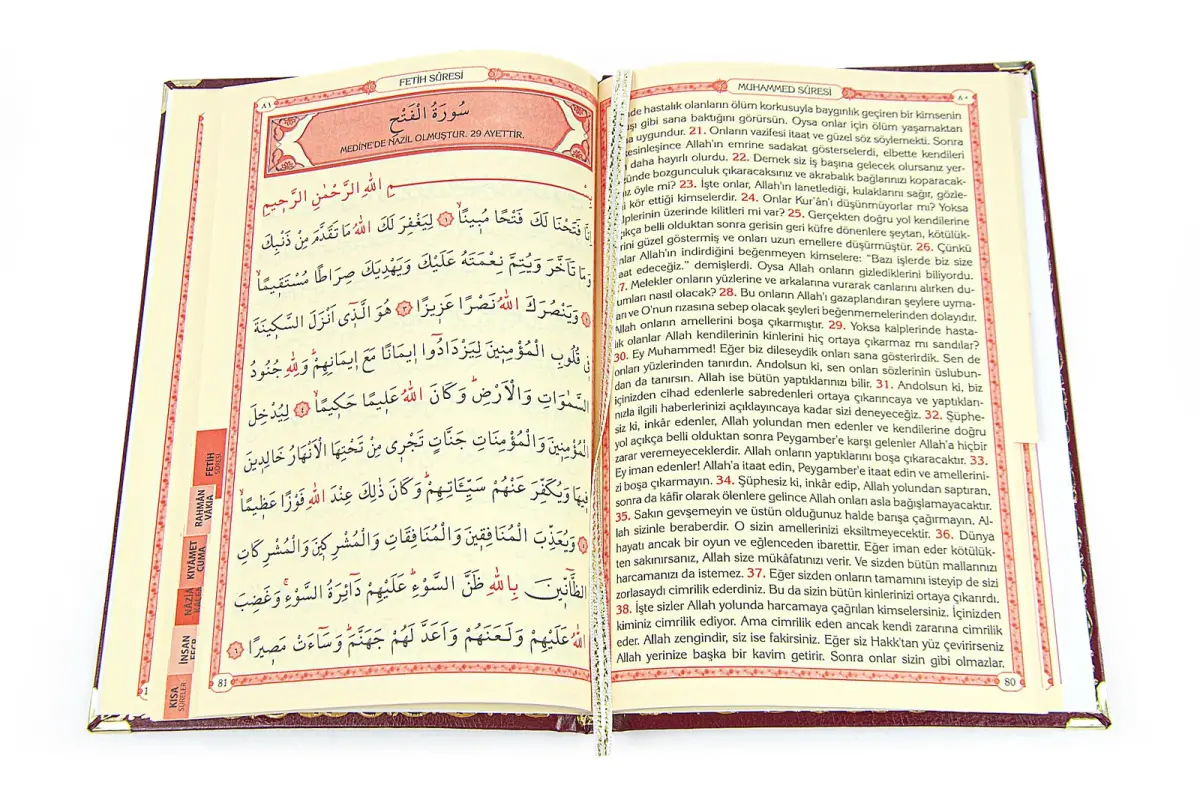 MUHAMMED SÛRESİ
٨٠
de hastalık olanların ölüm korkusuyla baygınlık geçiren bir kimsenin
şı gibi sana baktığını görürsün. Oysa onlar için ölüm yaşamaktan
a uygundur. 21. Onların vazifesi itaat ve güzel söz söylemekti. Sonra
esinleşince Allah'ın emrine sadakat gösterselerdi, elbette kendileri
daha hayırlı olurdu. 22. Demek siz iş başına gelecek olursanız yer-
ünde bozgunculuk çıkaracaksınız ve akrabalık bağlarınızı koparacak-
ız öyle mi? 23. İşte onlar, Allah'ın lanetlediği, kulaklarını sağır, gözle-
i kör ettiği kimselerdir. 24. Onlar Kur'ân'ı düşünmüyorlar mı? Yoksa
lplerinin üzerinde kilitleri mi var? 25. Gerçekten doğru yol kendilerine
ıkça belli olduktan sonra gerisin geri küfre dönenlere şeytan, kötülük-
rini güzel göstermiş ve onları uzun emellere düşürmüştür. 26. Çünkü
onlar Allah'ın indirdiğini beğenmeyen kimselere: "Bazı işlerde biz size
aat edeceğiz." demişlerdi. Oysa Allah onların gizlediklerini biliyordu.
7. Melekler onların yüzlerine ve arkalarına vurarak canlarını alırken du-
umları nasıl olacak? 28. Bu onların Allah'ı gazaplandıran şeylere uyma-
arı ve O'nun rızasına sebep olacak şeyleri beğenmemelerinden dolayıdır.
Allah onların amellerini boşa çıkarmıştır. 29. Yoksa kalplerinde hasta-
lık olanlar Allah kendilerinin kinlerini hiç ortaya çıkarmaz mı sandılar?
30. Ey Muhammed! Eğer biz dileseydik onları sana gösterirdik. Sen de
onları yüzlerinden tanırdın. Andolsun ki, sen onları sözlerinin üslubun-
dan da tanırsın. Allah ise bütün yaptıklarınızı bilir. 31. Andolsun ki, biz
içinizden cihad edenlerle sabredenleri ortaya çıkarıncaya ve yaptıkları-
nızla ilgili haberlerinizi açıklayıncaya kadar sizi deneyeceğiz. 32. Şüphe-
siz ki, inkâr edenler, Allah yolundan men edenler ve kendilerine doğru
yol açıkça belli olduktan sonra Peygamber'e karşı gelenler Allah'a hiçbir
zarar veremeyeceklerdir. Allah onların yaptıklarını boşa çıkaracaktır. 33.
Ey iman edenler! Allah'a itaat edin, Peygamber'e itaat edin ve amellerini-
zi boşa çıkarmayın. 34. Şüphesiz ki, inkâr edip, Allah yolundan saptıran,
sonra da kâfir olarak ölenlere gelince Allah onları asla bağışlamayacaktır.
35. Sakın gevşemeyin ve üstün olduğunuz halde barışa çağırmayın. Al-
lah sizinle beraberdir. O sizin amellerinizi eksiltmeyecektir. 36. Dünya
hayatı ancak bir oyun ve eğlenceden ibarettir. Eğer iman eder kötülük-
ten sakınırsanız, Allah size mükâfatınızı verir. Ve sizden bütün mallarınızı
harcamanızı da istemez. 37. Eğer sizden onların tamamını isteyip de sizi
zorlasaydı cimrilik ederdiniz. Bu da sizin bütün kinlerinizi ortaya çıkarırdı.
38. İşte sizler Allah yolunda harcamaya çağrılan kimselersiniz. İçinizden
kiminiz cimrilik ediyor. Ama cimrilik eden ancak kendi zararına cimrilik
eder. Allah zengindir, siz ise fakirsiniz. Eğer siz Hakk'tan yüz çevirirseniz
Allah yerinize başka bir kavim getirir. Sonra onlar sizin gibi olmazlar.
80
FETİH SÛRESİ
٨١
سُورَةُ الْفَتْحِ
MEDİNE'DE NAZİL OLMUŞTUR. 29 AYETTİR.
مِ اللّٰهِ الرَّحْمٰنِ الرَّحٖيمِ
اِنَّا فَتَحْنَا لَكَ فَتْحًا مُبٖينًاۙ ﴿١﴾ لِيَغْفِرَ لَكَ اللّٰهُ مَا تَقَدَّمَ مِنْ ذَنْبِكَ
وَمَا تَاَخَّرَ وَيُتِمَّ نِعْمَتَهُ عَلَيْكَ وَيَهْدِيَكَ صِرَاطًا مُسْتَقٖيمًاۙ
وَيَنْصُرَكَ اللّٰهُ نَصْرًا عَزٖيزًا ﴿٣﴾ هُوَ الَّذٖٓى اَنْزَلَ السَّكٖينَةَ
فٖى قُلُوبِ الْمُؤْمِنٖينَ لِيَزْدَادُٓوا اٖيمَانًا مَعَ اٖيمَانِهِمْؕ وَلِلّٰهِ جُنُودُ
السَّمٰوَاتِ وَالْاَرْضِؕ وَكَانَ اللّٰهُ عَلٖيمًا حَكٖيمًاۙ ﴿٤﴾ لِيُدْخِلَ
الْمُؤْمِنٖينَ وَالْمُؤْمِنَاتِ جَنَّاتٍ تَجْرٖى مِنْ تَحْتِهَا الْاَنْهَارُ خَالِدٖينَ
فٖيهَا وَيُكَفِّرَ عَنْهُمْ سَيِّـَٔاتِهِمْؕ وَكَانَ ذٰلِكَ عِنْدَ اللّٰهِ فَوْزًا عَظٖيمًاۙ
وَيُعَذِّبَ الْمُنَافِقٖينَ وَالْمُنَافِقَاتِ وَالْمُشْرِكٖينَ وَالْمُشْرِكَاتِ
الظَّٓانّٖينَ بِاللّٰهِ ظَنَّ السَّوْءِؕ عَلَيْهِمْ دَٓائِرَةُ السَّوْءِۚ وَغَضِبَ
اللّٰهُ عَلَيْهِمْ وَلَعَنَهُمْ وَاَعَدَّ لَهُمْ جَهَنَّمَؕ وَسَٓاءَتْ مَصٖيرًا ﴿٦﴾
81
FETİH
SÛRESİ
RAHMÂN
VÂKIA
KIYÂMET
CUMA
İNSAN
KISA
SÛRELER